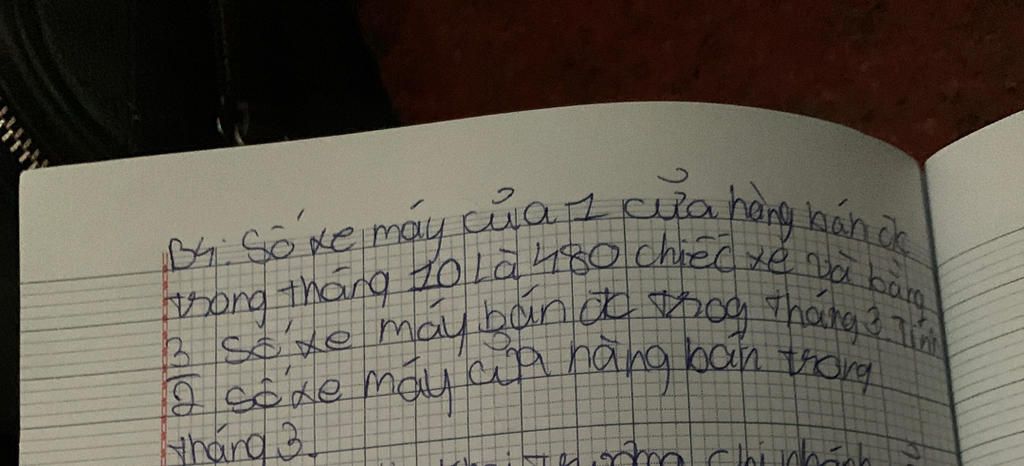 B4: Số xe máy của 1 cửa hàng bán đc
trong tháng 10 là 480 chiếc xe và bằng
3/2 số xe máy bán đc trog tháng 3. Tính
số xe máy cửa hàng bán trong
tháng 3.
chi nhánh